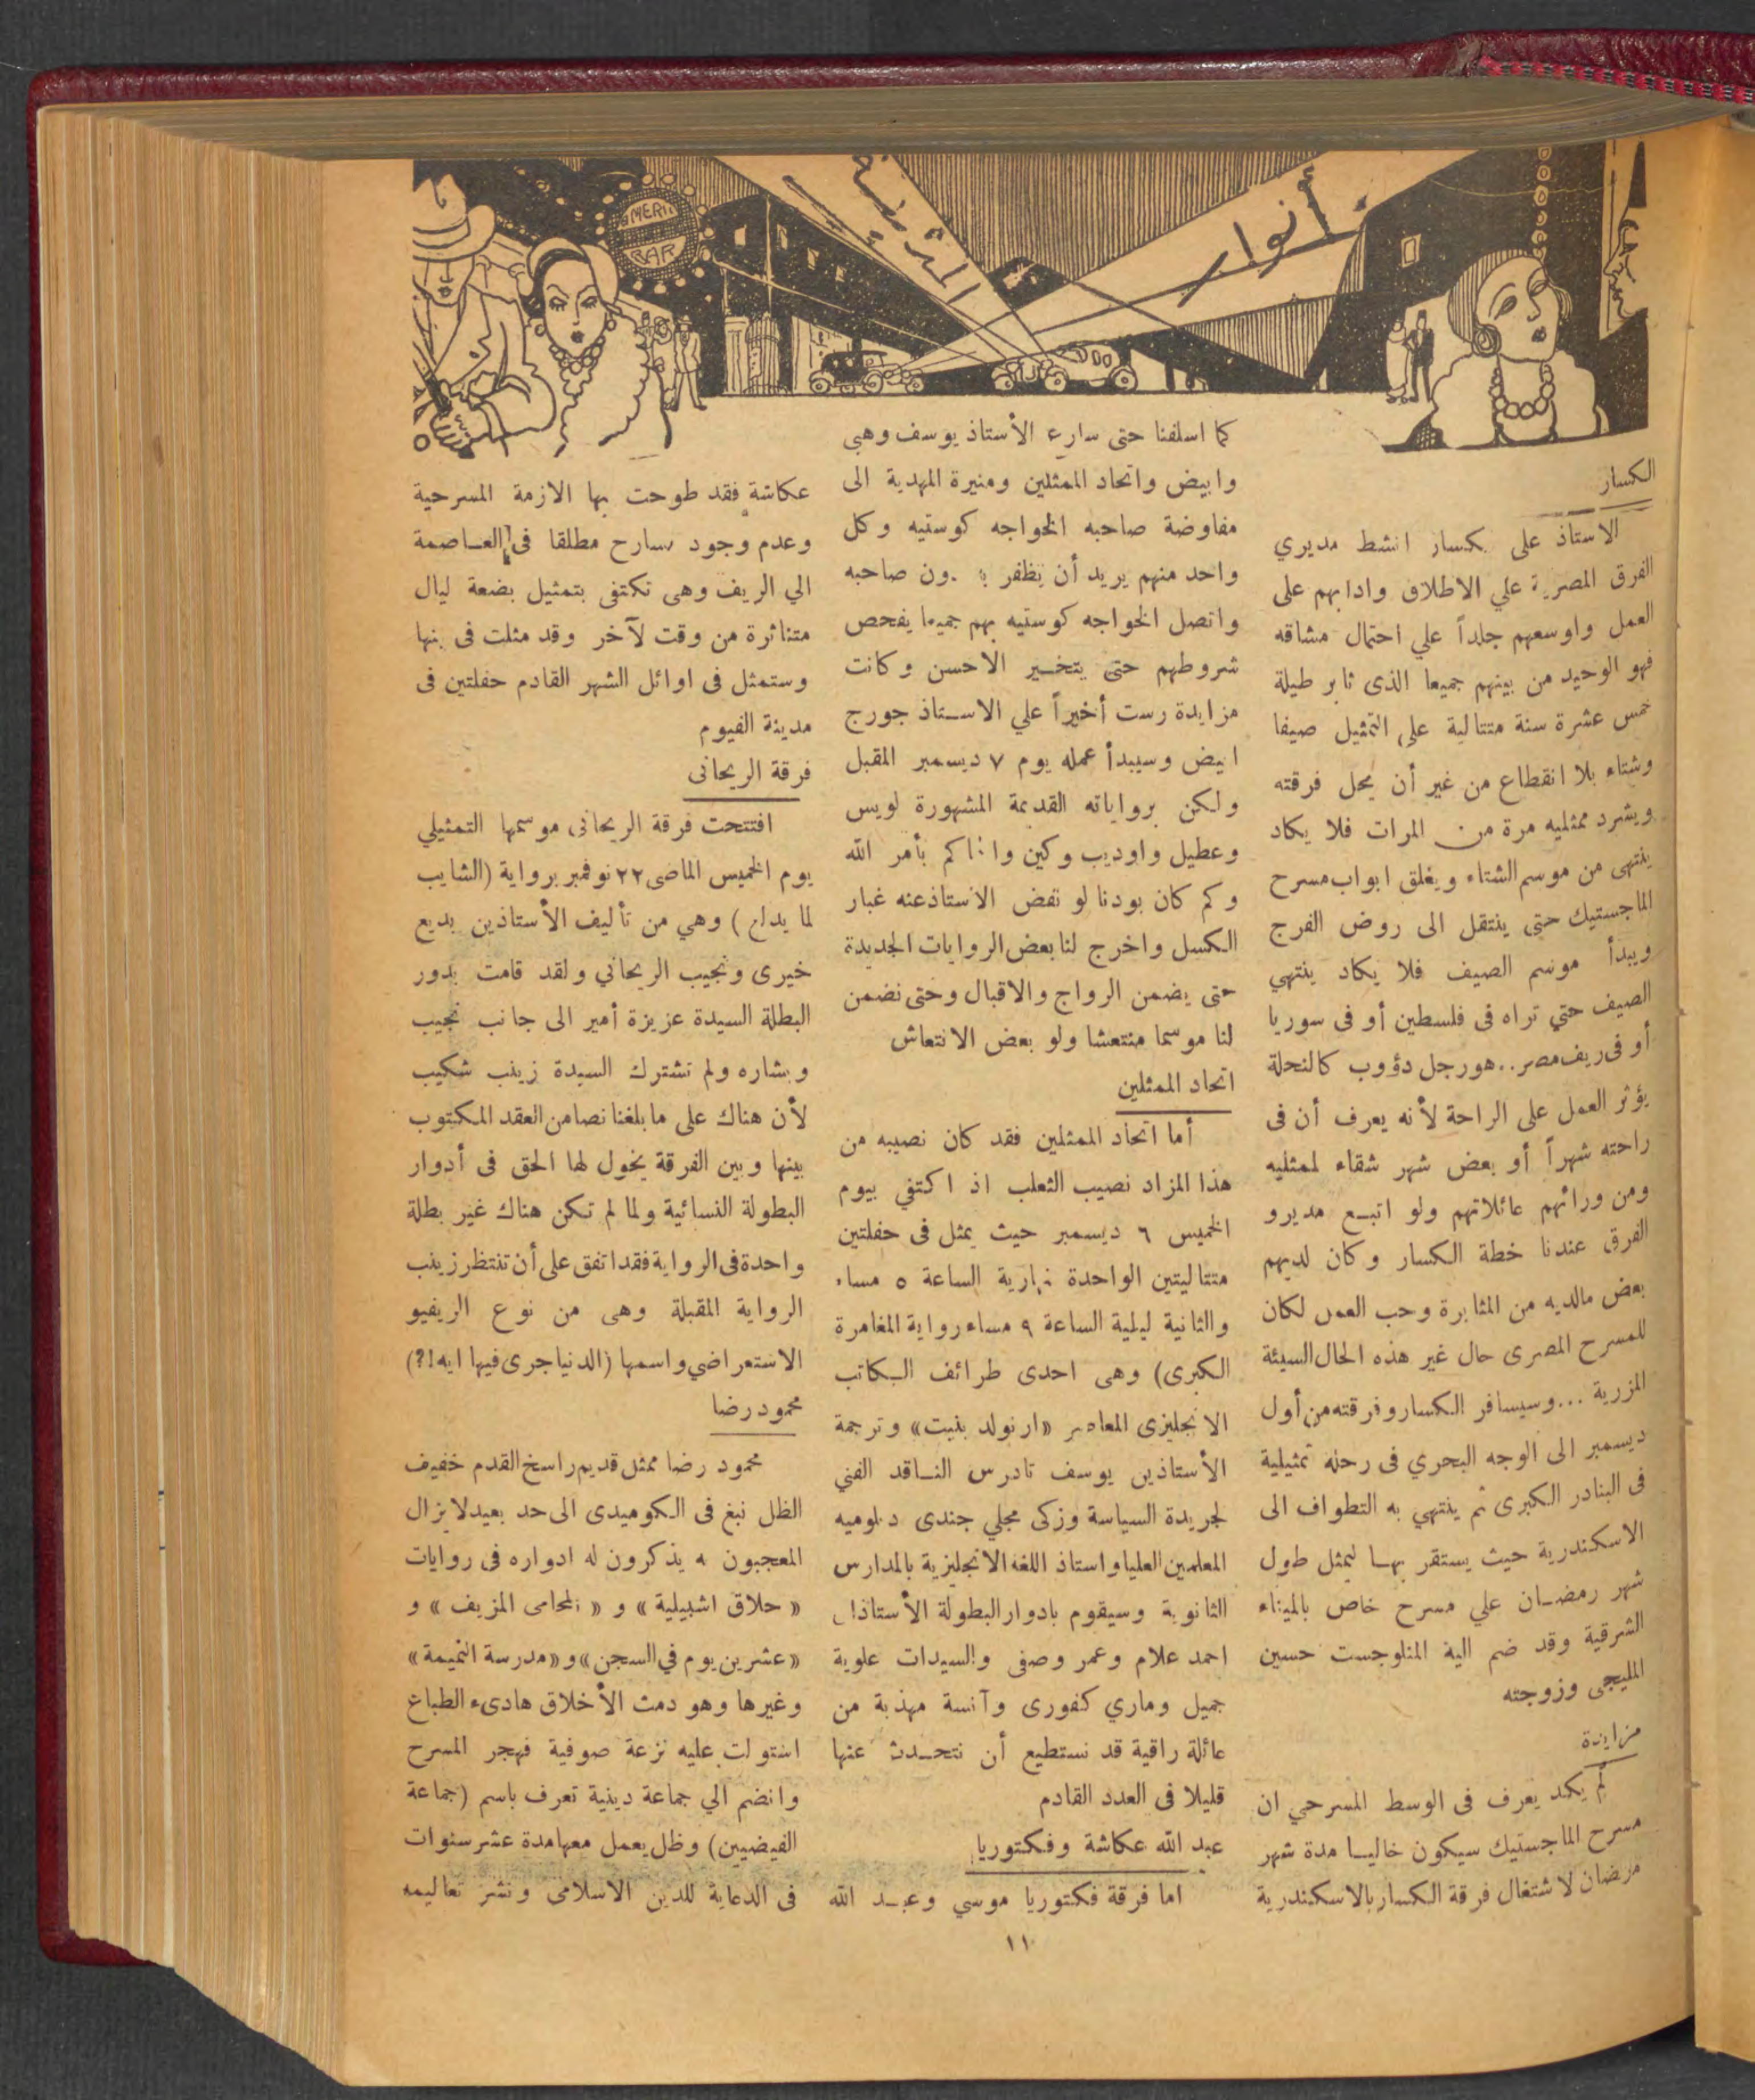 أنوار
المدينة
AMERI
BAR
الكسار
الاستاذ على الكسار انشط مديري
الفرق المصرية علي الاطلاق وادابهم على
العمل واوسعهم جلداً علي احتمال مشاقه
فهو الوحيد من بينهم جميعا الذى ثابر طيلة
خمس عشرة سنة متتالية على التمثيل صيفا
وشتاء بلا انقطاع من غير أن يحل فرقته
ويشرد ممثليه مرة من المرات فلا يكاد
ينتهى من موسم الشتاء ويغلق ابواب مسرح
الماجستيك حتى ينتقل الى روض الفرج
ويبدأ موسم الصيف فلا يكاد ينتهي
الصيف حتي تراه فى فلسطين أو فى سوريا
أو فى ريف مصر .. هو رجل دؤوب كالنحلة
يؤثر العمل على الراحة لأنه يعرف أن فى
راحته شهراً أو بعض شهر شقاء لممثليه
ومن ورائهم عائلاتهم ولو اتبع مديرو
الفرق عندنا خطة الكسار وكان لديهم
بعض مالديه من المثابرة وحب العمل لكان
للمسرح المصرى حال غير هذه الحال السيئة
المزرية ... وسيسافر الكسار وفرقته من أول
ديسمبر الى الوجه البحري فى رحلة تمثيلية
فى البنادر الكبرى ثم ينتهي به التطواف الى
الاسكندرية حيث يستقر بها ليمثل طول
شهر رمضان علي مسرح خاص بالميناء
الشرقية وقد ضم اليه المنلوجست حسين
المليجى وزوجته
مزايدة
لم يكد يعرف فى الوسط المسرحي ان
مسرح الماجستيك سيكون خاليا مدة شهر
رمضان لاشتغال فرقة الكسار بالاسكندرية
كما اسلفنا حتى سارع الأستاذ يوسف وهبي
وابيض واتحاد الممثلين ومنيرة المهدية الى
مفاوضة صاحبه الخواجه كوستيه وكل
واحد منهم يريد أن يظفر به دون صاحبه
واتصل الخواجه كوستيه بهم جميعا يفحص
شروطهم حتى يتخير الاحسن وكانت
مزايدة رست أخيراً علي الاستاذ جورج
ابيض وسيبدأ عمله يوم ٧ ديسمبر المقبل
ولكن برواياته القديمة المشهورة لويس
وعطيل واوديب وكين والحاكم بأمر الله
وكم كان بودنا لو نفض الاستاذ عنه غبار
الكسل واخرج لنا بعض الروايات الجديدة
حتى يضمن الرواج والاقبال وحتى نضمن
لنا موسما منتعشا ولو بعض الانتعاش
اتحاد الممثلين
أما اتحاد الممثلين فقد كان نصيبه من
هذا المزاد نصيب الثعلب اذ اكتفي بيوم
الخميس ٦ ديسمبر حيث يمثل فى حفلتين
متتاليتين الواحدة نهارية الساعة ٥ مساء
والثانية ليلية الساعة ٩ مساء رواية المغامرة
الكبرى) وهى احدى طرائف الكاتب
الانجليزى المعاصر «ارنولد بنيت» وترجمة
الأستاذين يوسف تادرس الناقد الفني
لجريدة السياسة وزكى مجلي جندى دبلوميه
المعلمين العليا واستاذ اللغه الانجليزية بالمدارس
الثانوية وسيقوم بادوار البطولة الأستاذان
احمد علام وعمر وصفى والسيدات علوية
جميل وماري كفورى وآنسة مهذبة من
عائلة راقية قد نستطيع أن نتحدث عنها
قليلا فى العدد القادم
عبد الله عكاشة وفكتوريا
اما فرقة فكتوريا موسي وعبد الله
عكاشة فقد طوحت بها الازمة المسرحية
وعدم وجود مسارح مطلقا فى العاصمة
الي الريف وهى تكتفى بتمثيل بضعة ليال
متناثرة من وقت لآخر وقد مثلت فى بنها
وستمثل فى اوائل الشهر القادم حفلتين فى
مدينة الفيوم
فرقة الريحانى
افتتحت فرقة الريحانى موسمها التمثيلي
يوم الخميس الماضى ٢٢ نوفمبر برواية (الشايب
لما يدلع) وهي من تأليف الأستاذين بديع
خيرى ونجيب الريحاني ولقد قامت بدور
البطلة السيدة عزيزة أمير الى جانب نجيب
وبشاره ولم تشترك السيدة زينب شكيب
لأن هناك على مابلغنا نصا من العقد المكتوب
بينها وبين الفرقة يخول لها الحق فى أدوار
البطولة النسائية ولما لم تكن هناك غير بطلة
واحدة فى الرواية فقد اتفق على أن تنتظر زينب
الرواية المقبلة وهى من نوع الريفيو
الاستعراضي واسمها (الدنيا جرى فيها ايه !?)
محمود رضا
محمود رضا ممثل قديم راسخ القدم خفيف
الظل نبغ فى الكوميدى الى حد بعيد لا يزال
المعجبون به يذكرون له ادواره فى روايات
« حلاق اشبيلية » و « المحامى المزيف » و
«عشرين يوم في السجن» و«مدرسة النميمة»
وغيرها وهو دمث الأخلاق هادىء الطباع
استولت عليه نزعة صوفية فهجر المسرح
وانضم الي جماعة دينية تعرف باسم (جماعة
الفيضيين) وظل يعمل معها مدة عشر سنوات
فى الدعاية للدين الاسلامى ونشر تعاليمه
١١